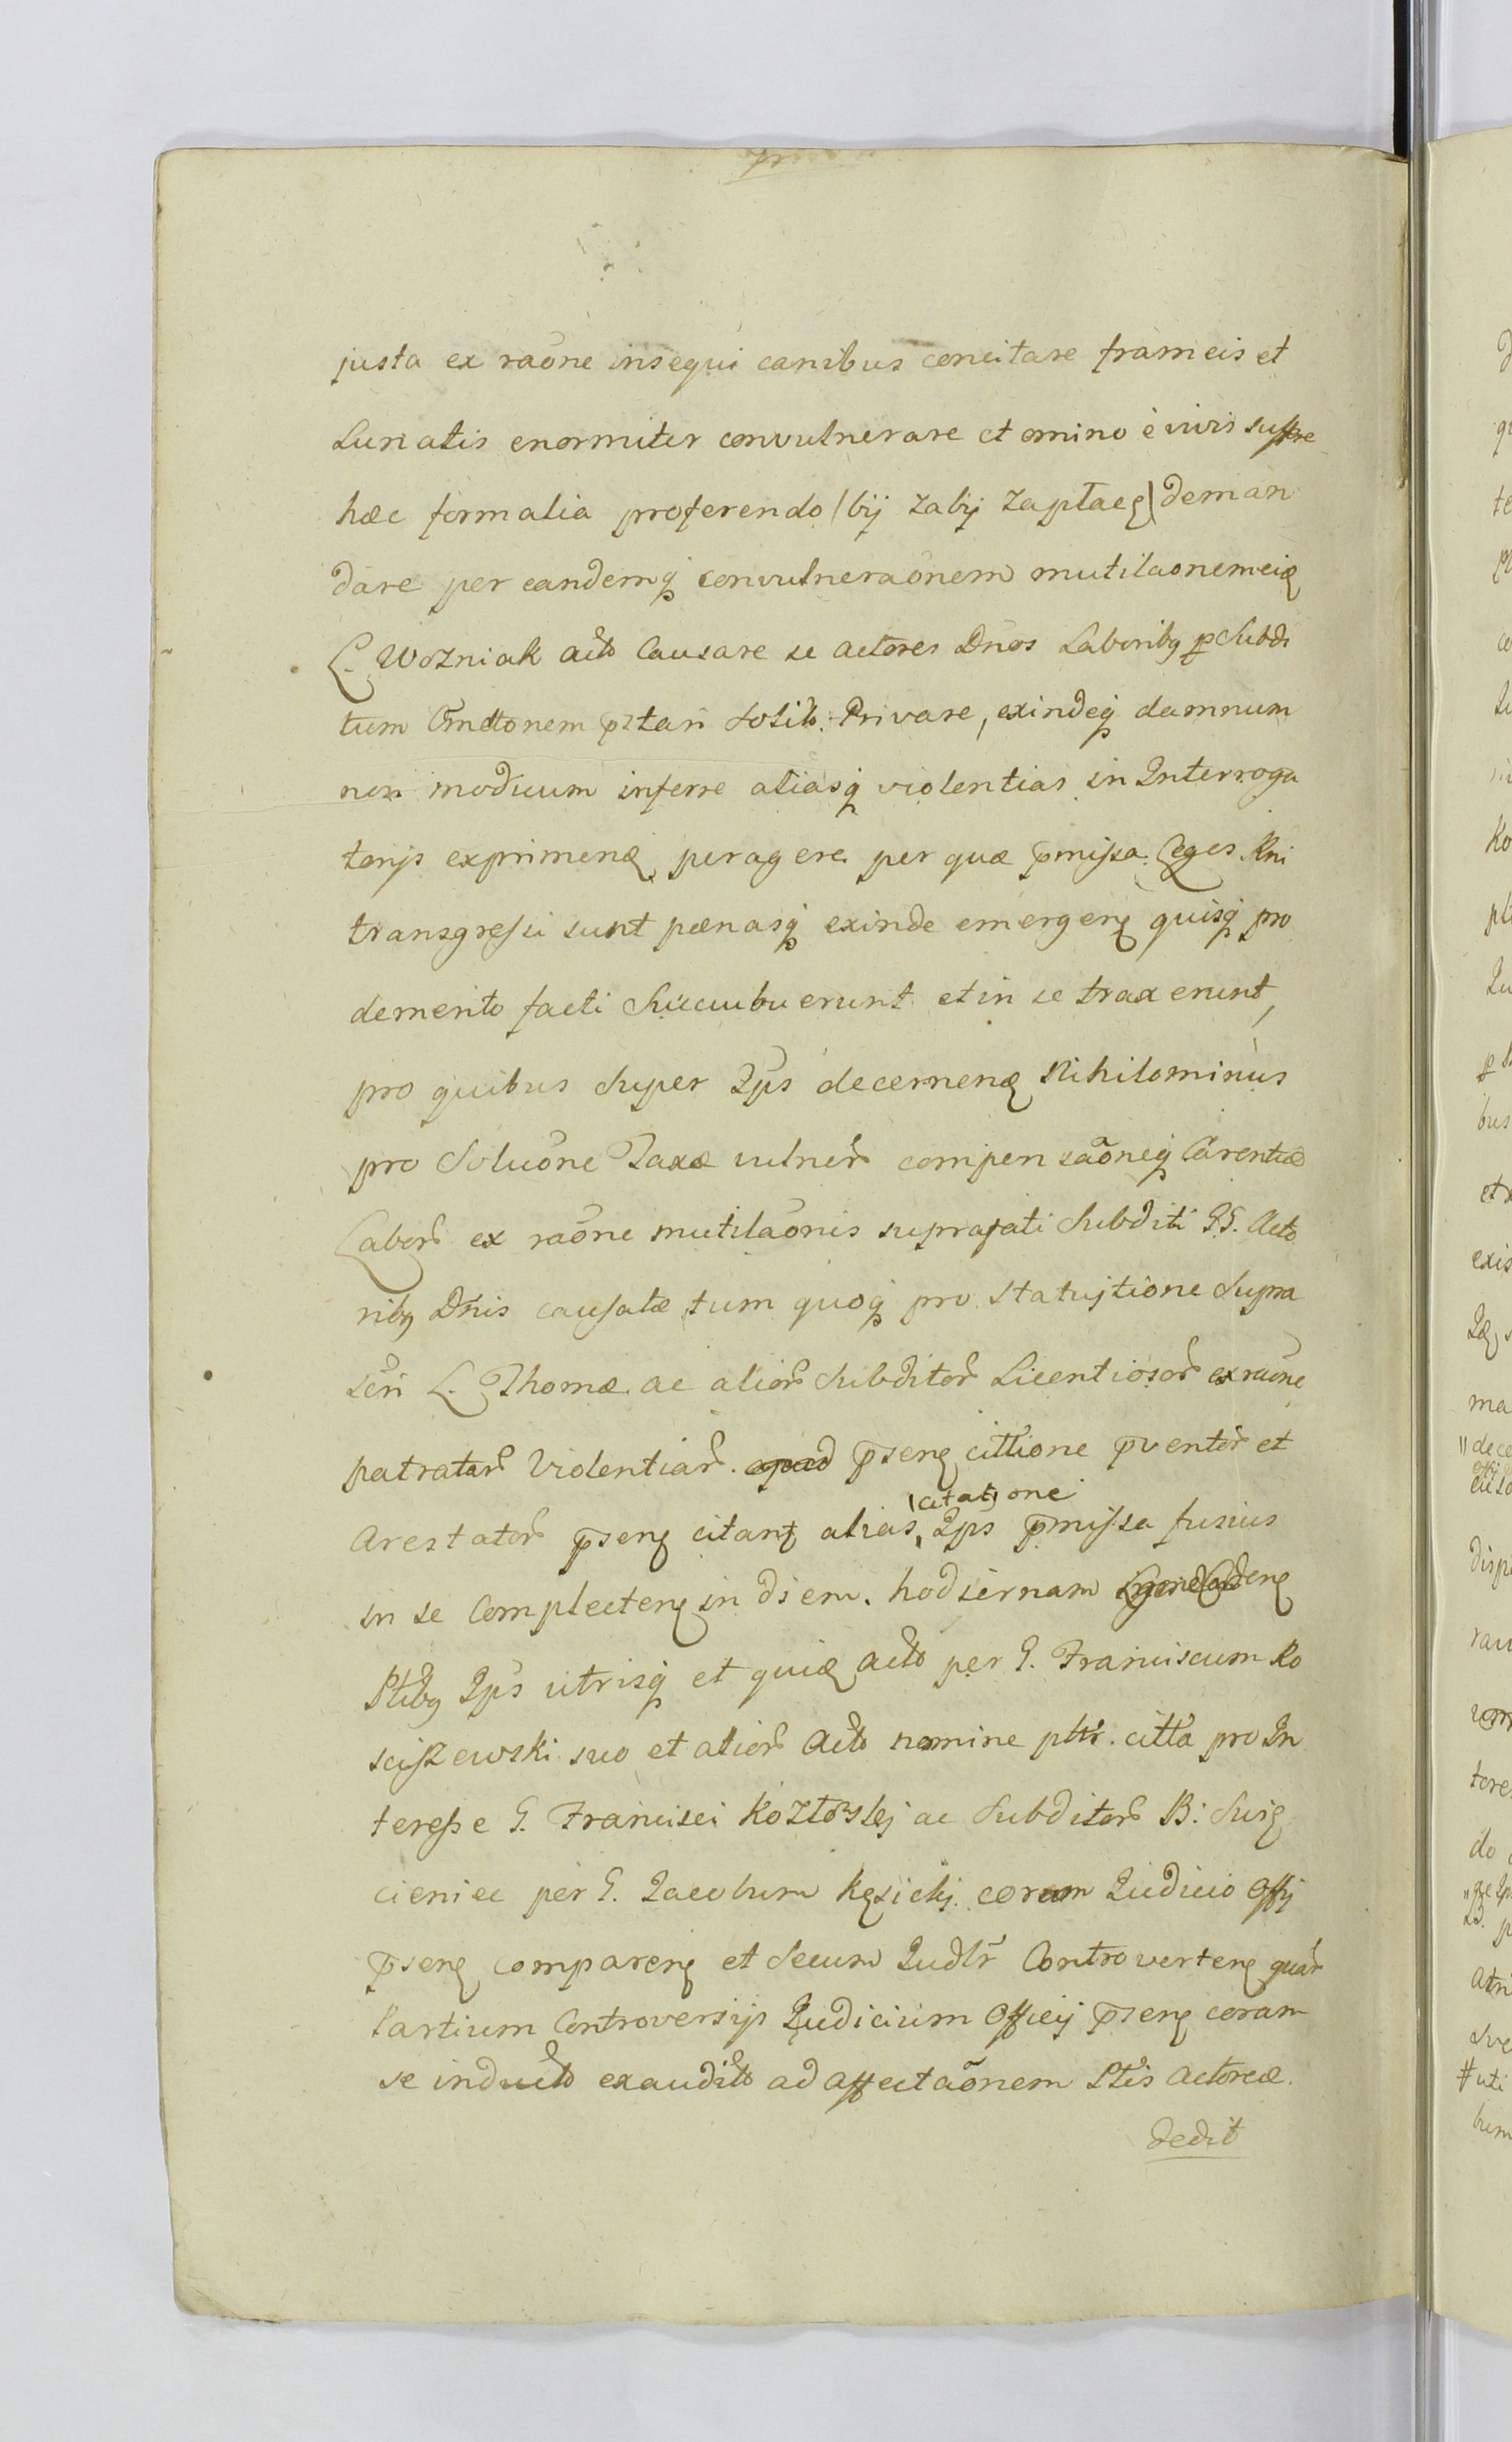 justa ex raōne insequi canibus concitare frameis et
Lunatis enormiter convulnerare et omino è vivis
hæc formalia proferendo (bij zabij zapłacę) deman
dare per eandemq convulneraōnem mutilaonem
L. Wozniak acto Causare se actores Dnos Laboribg p Subdi
tum tari Solit. Privare, exindeq damnum
non modicum inferre aliasq violentias in Interroga
torijs exprimen peragere per quæ p̄missa Leges Rni
transgressi sunt pænasq exinde emergen quisq pro
demerito facti Succubuerunt et in se traxerunt,
pro quibus Super Ips decernen Nihilominus
pro Soluōne Taxæ vulner compensaōneq Carentiæ
Labor ex raōne mutilaōnis suprafati Subditi GG. Acto
ribg Dnis causatæ tum quoq pro statujtione Supra
scri L. Thomæ ac alior Subditor Licentiosor ex raōne
patratar Violentiar. p̄sen cittione p̄ventor et
Arestator p̄sen citan alias
citatione
Ips p̄missa fusius
in se Complecten in diem hodiernam
Ptibg Ips utrisq et quidē acto per G. Franciscum Ro
sciszewski suo et alior acto nomine pltr. citta pro In
teresse G. Francisci ac Subditor B: Swię
cieniec per G. Jacobum Kęsickj coram Judicio Offij
p̄sen comparen et Secum Judlr Controverten quar
Partium Controversijs Judicium Officij p̄sen coram
se inducto exaudito ad affectaōnem Ptis Actoreæ.
dedit